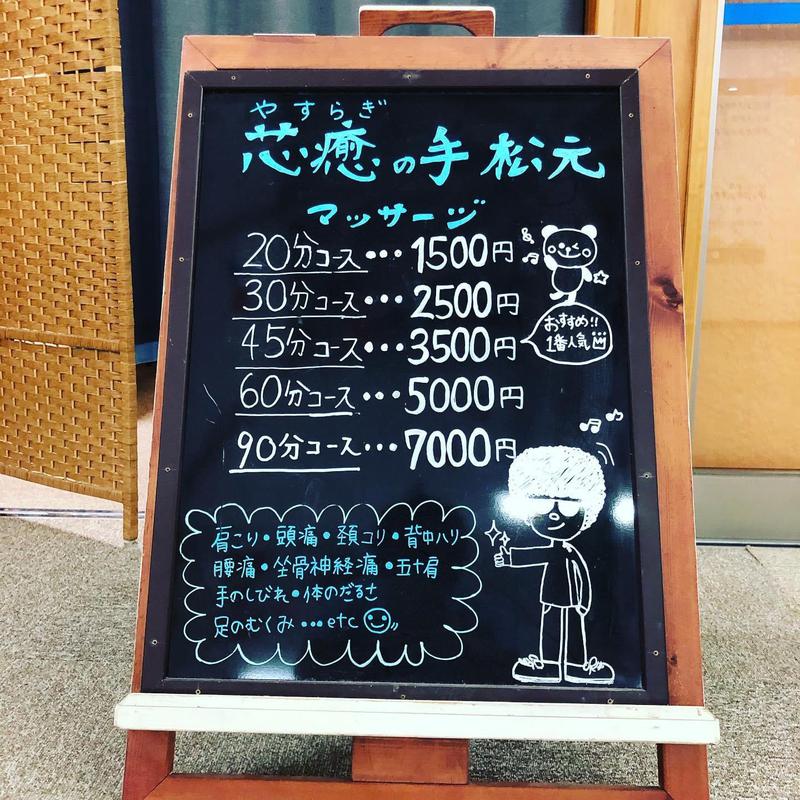 やすらぎ
芯癒の手 松元
マッサージ
20分コース・・・1500円
30分コース・・・2500円
45分コース・・・3500円
おすすめ!!
1番人気
60分コース・・・5000円
90分コース・・・7000円
肩こり・頭痛・頚コリ・背中ハリ
腰痛・坐骨神経痛・五十肩
手のしびれ・体のだるさ
足のむくみ・・・etc